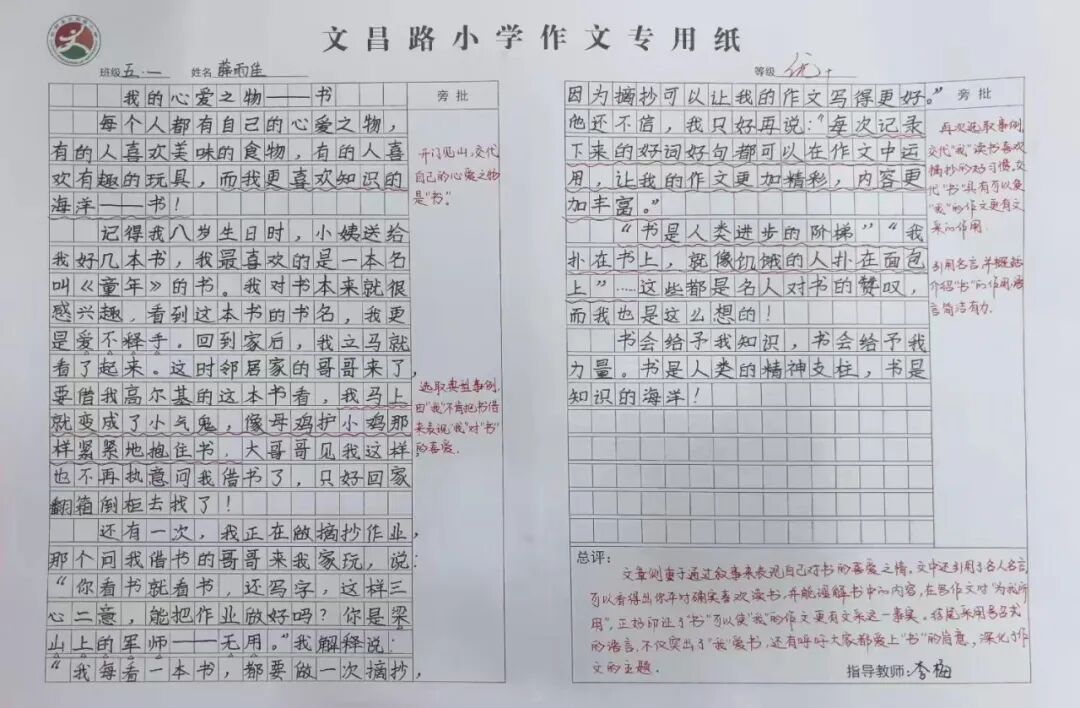 文昌路小学作文专用纸
班级 五.一 姓名 薛雨佳
等级 优+
我的心爱之物——书
旁批
每个人都有自己的心爱之物，
有的人喜欢美味的食物，有的人喜
欢有趣的玩具，而我更喜欢知识的
海洋——书！
开门见山，交代
自己的心爱之物
是“书”。
记得我八岁生日时，小姨送给
我好几本书，我最喜欢的是一本名
叫《童年》的书。我对书本来就很
感兴趣，看到这本书的书名，我更
是爱不释手。回到家后，我立马就
看了起来。这时邻居家的哥哥来了，
要借我高尔基的这本书看，我马上
就变成了小气鬼，像母鸡护小鸡那
样紧紧地抱住书，大哥哥见我这样，
也不再执意问我借书了，只好回家
翻箱倒柜去找了！
选取典型事例，
由“我”不肯把书借
来表现“我”对“书”
的喜爱。
还有一次，我正在做摘抄作业，
那个问我借书的哥哥来我家玩，说：
“你看书就看书，还写字，这样三
心二意，能把作业做好吗？你是梁
山上的军师——无用。”我解释说：
“我每看一本书，都要做一次摘抄，
因为摘抄可以让我的作文写得更好。”
旁批
他还不信，我只好再说：“每次记录
下来的好词好句都可以在作文中运
用，让我的作文更加精彩，内容更
加丰富。”
再次选取事例，
交代“我”读书喜欢
摘抄的好习惯，交
代“书”具有可以使
“我”的作文更有文
采的作用。
“书是人类进步的阶梯”“我
扑在书上，就像饥饿的人扑在面包
上”……这些都是名人对书的赞叹，
而我也是这么想的！
引用名言，并概括
介绍“书”的作用，语
言简洁有力。
书会给予我知识，书会给予我
力量。书是人类的精神支柱，书是
知识的海洋！
总评：
文章侧重于通过叙事来表现自己对书的喜爱之情。文中还引用了名人名言，
可以看得出你平时确实喜欢读书，并能理解书中的内容，在写作文时“为我所
用”，正好印证了“书”可以使“我”的作文更有文采这一事实。结尾采用号召式
的语言，不仅突出了“我”爱书，还有呼吁大家都爱上“书”的意，深化了作
文的主题。
指导教师：李梅